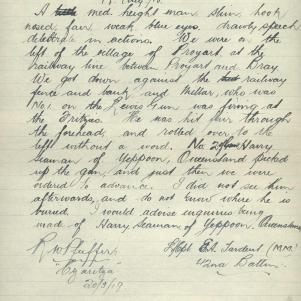 A med. height man, slim, hook
nosed, fair, weak blue eyes, drawly speech
deliberate in actions. We were on the
left of the village of Proyart at the
railway line between Proyart and Bray
We got down against the railway
fence and bank and Mellar, who was
No 1. on the Lewis Gun was firing at
the Fritzies. He was hit over through
the forehead, and rolled over to the
left without a word. No. 2 Harry
Seaman of Yeppoon, Queensland picked
up the gun, and just then we were
ordered to advance. I did not see him
afterwards, and do not know where he is
buried. I would advise inquiries being
made of Harry Seaman of Yeppoon. Queensland
R. W. Pfuffer L/Cpl E.A. Tardent (M.M.)
42nd Battn.
20/3/19